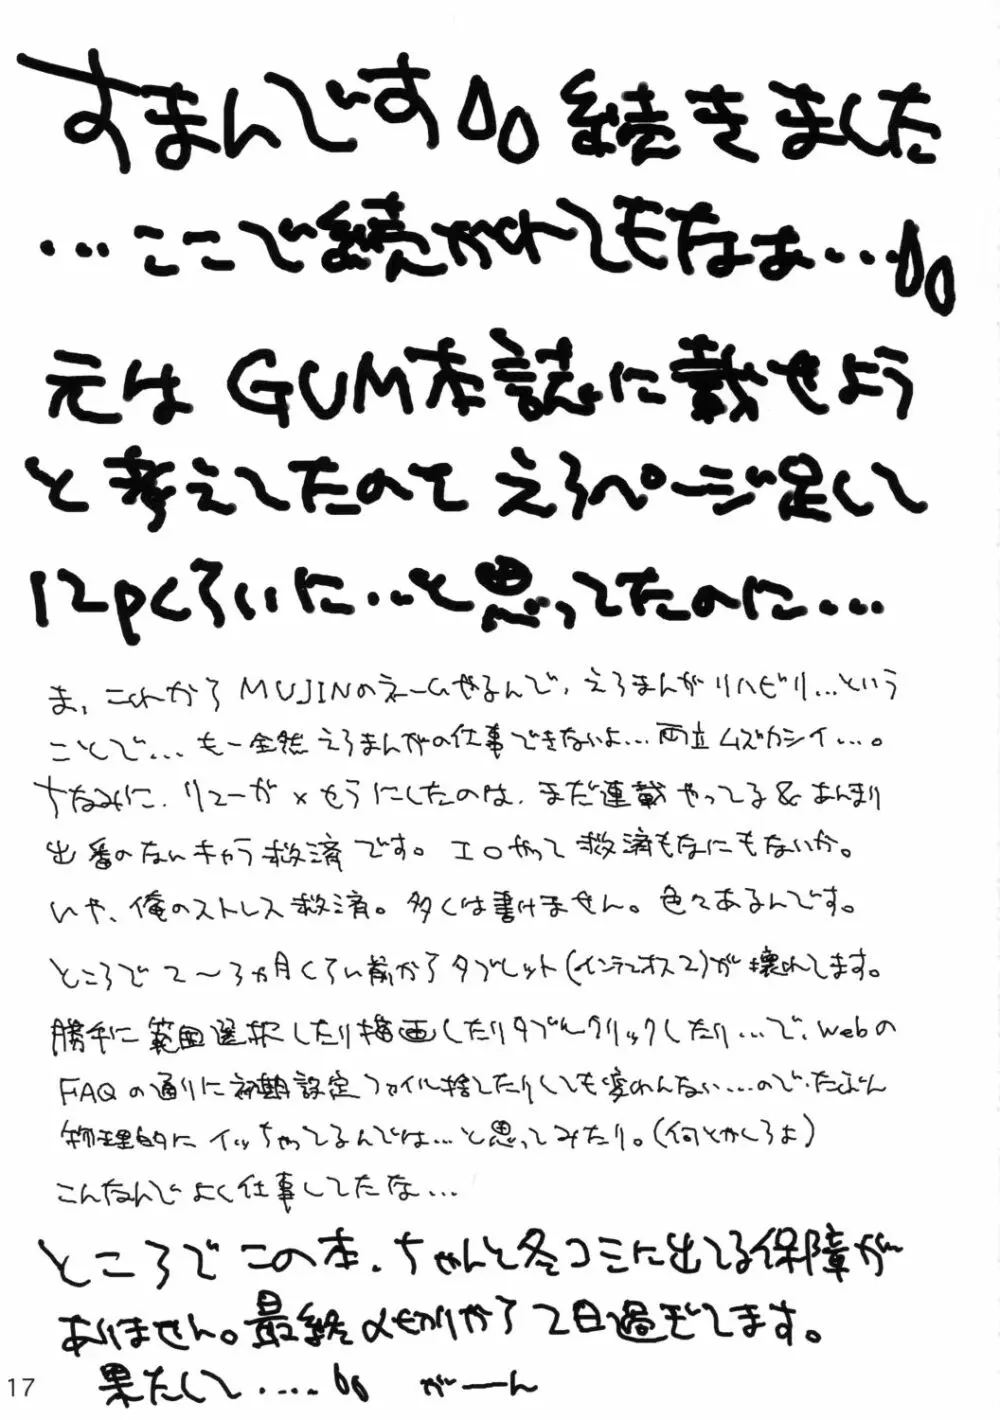 すまんです 続きました
…ここで続かれてもなぁ…
元は GUM本誌に載せよう
と考えてたのでえろページ足して
12pくらいに…と思ってたのに…
ま、これから MUJINのネームやるんで、えろまんがリハビリ…という
ことで… もー全然えろまんがの仕事できないよ… 両立ムズカシイ…。
ちなみに、リューが×もうにしたのは、まだ連載やってる&あんまり
出番のないキャラ救済です。エロやって救済もなにもないか。
いや、俺のストレス救済。多くは書けません。色々あるんです。
ところで2〜3ヵ月くらい前からタブレット(インテュオス2)が壊れてます。
勝手に範囲選択したり描画したりダブルクリックしたり…で、Webの
FAQの通りに初期設定ファイル捨てたりしても変わんない…ので、たぶん
物理的にイッちゃってるんでは…と思ってみたり。(何とかしろよ)
こんなんでよく仕事してたな…
ところでこの本、ちゃんと冬コミに出てる保障が
ありません。最終〆切りから2日過ぎてます。
果たして… がーん
17